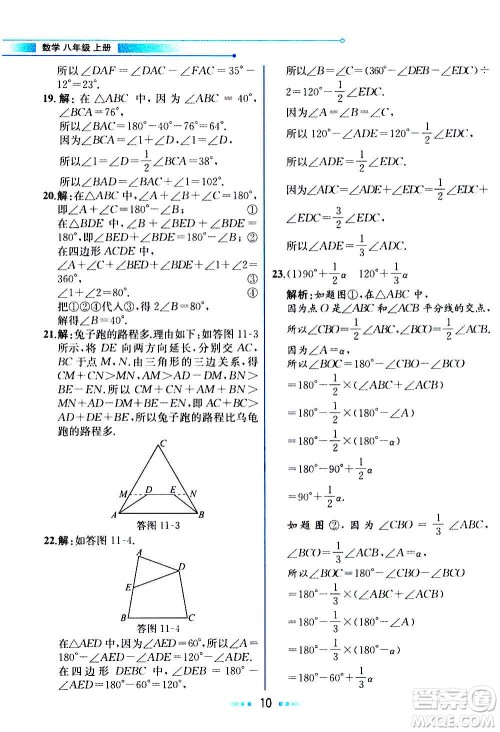 数学 八年级 上册
所以∠DAF=∠DAC-∠FAC=35°-
12°=23°.
19.解:在△ABC 中,因为∠ABC=40°,
∠BCA=76°,
所以∠BAC=180°-∠ABC-∠BCA=
180°-40°-76°=64°.
因为∠BCA=∠1+∠D,∠1=∠D,
所以∠1=∠D=1/2∠BCA=38°.
所以∠BAD=∠BAC+∠1=102°.
20.解:在△ABC中,∠A+∠B+∠C=180°,
即∠A+∠C=180°-∠B; ①
在△BDE 中,∠BED+∠B+∠BDE=
180°,即∠BED+∠BDE=180°-∠B;②
在四边形 ACDE 中,
∠A+∠C+∠1+∠2=
360°. ④
把①②③代入④,得∠1+∠2=2∠B.
解得∠B=40°.
21.解:兔子跑的路程多.理由如下:如答图 11-3
所示,将 DE 向两方向延长,分别交 AC,
BC 于点M,N.由三角形的三边关系,得
CM+CN>MN,AM+MD>AD,BN+
EN>BE.
所以 CM+CN+AM+MD+BN+EN>
MN+AD+BE.
所以 CM+AM+CN+BN>
AD+DE+BE.所以兔子跑的路程比乌龟
跑的路程多.
C
M D E N
A B
答图 11-3
22.解:如答图 11-4.
A
D
E
B C
答图 11-4
在△AED 中,因为∠A=60°,
所以∠AED+∠ADE=180°-∠A=
180°-60°=120°.
在四边形 DEBC 中,∠DEB=
180°-∠AED,∠EDC=
所以∠B=∠C=(360°-∠DEB-∠EDC)÷
2=120°-1/2∠EDC.
所以 120°-1/2∠ADE=120°-1/2∠EDC.
所以∠ADE=1/2∠EDC.
因为∠ADC=∠ADE+∠EDC=1/2∠EDC+
∠EDC=3/2∠EDC=180°,
所以∠EDC=120°.
23.(1)90°+1/2α 120°+1/3α
解析:如题图①,在△ABC中,
因为点 O 是∠ABC 和∠ACB 平分线的交点,
所以∠BOC=180°-∠OBC-∠OCB
=180°-1/2(∠ABC+∠ACB)
=180°-1/2(180°-∠A)
=180°-90°+1/2α
=90°+1/2α.
如题图②,因为∠CBO=1/3∠ABC,
∠BCO=1/3∠ACB,
所以∠BOC=180°-∠CBO-∠BCO
=180°-1/3×(∠ABC+∠ACB)
=180°-1/3×(180°-∠A)
=180°-60°+1/3α
10